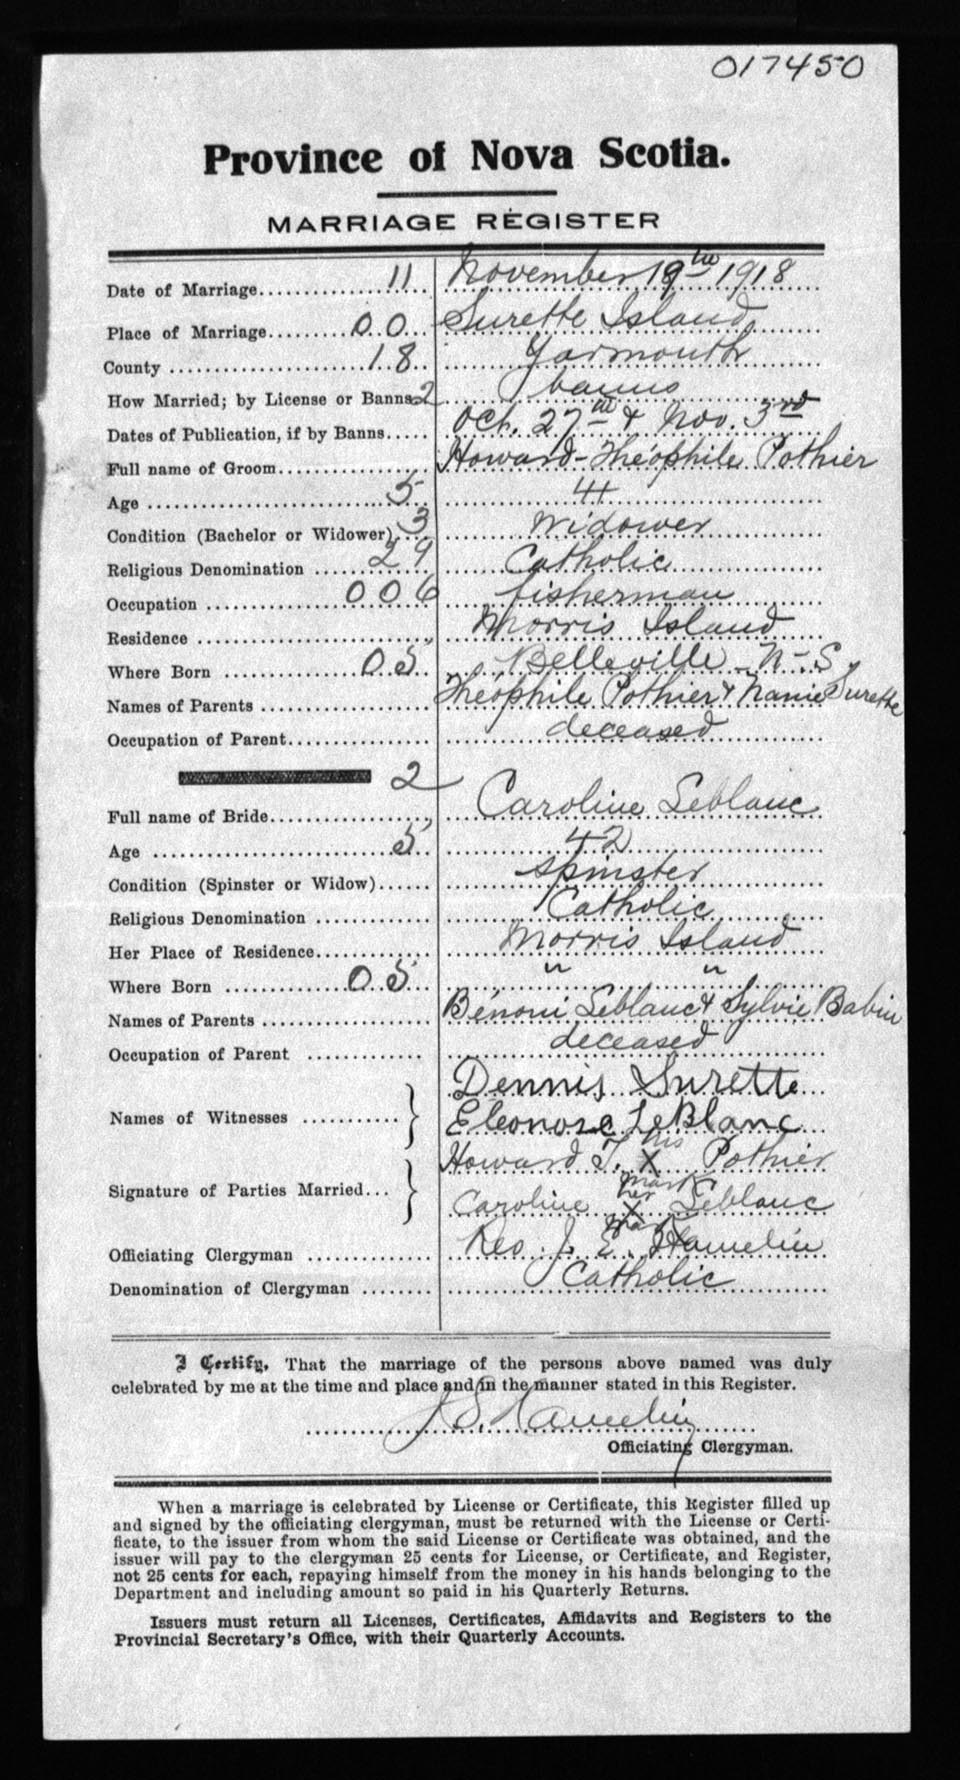 017450
Province of Nova Scotia.
MARRIAGE REGISTER
Date of Marriage................11.... November 19th 1918
Place of Marriage.........00... Surette Island
County ......................18... Yarmouth
How Married; by License or Banns 2 banns
Dates of Publication, if by Banns..... Oct. 27th & Nov. 3rd
Full name of Groom................. Howard-Théophile Pothier
Age ..........................5... 41
Condition (Bachelor or Widower) 3 widower
Religious Denomination ......29 Catholic
Occupation ...............006 fisherman
Residence ........................... Morris Island
Where Born ...............05.. Belleville N-S
Names of Parents ................... Théophile Pothier & Nanie Surette
Occupation of Parent................ deceased
2
Full name of Bride.................. Caroline Leblanc
Age ..........................5.. 42
Condition (Spinster or Widow)...... spinster
Religious Denomination ............. Catholic
Her Place of Residence............. Morris Island
Where Born .............05.. " "
Names of Parents ................... Bénoni Leblanc & Sylvie Babin
Occupation of Parent ............. deceased
Names of Witnesses ........... } Dennis Surette
Eleonore LeBlanc
Signature of Parties Married... } Howard T. his X mark Pothier
Caroline her X mark Leblanc
Officiating Clergyman .............. Rev. J. E. Hamelin
Denomination of Clergyman ........ Catholic
I Certify, That the marriage of the persons above named was duly
celebrated by me at the time and place and in the manner stated in this Register.
J. E. Hamelin
Officiating Clergyman.
When a marriage is celebrated by License or Certificate, this Register filled up
and signed by the officiating clergyman, must be returned with the License or Certi-
ficate, to the issuer from whom the said License or Certificate was obtained, and the
issuer will pay to the clergyman 25 cents for License, or Certificate, and Register,
not 25 cents for each, repaying himself from the money in his hands belonging to the
Department and including amount so paid in his Quarterly Returns.
Issuers must return all Licenses, Certificates, Affidavits and Registers to the
Provincial Secretary's Office, with their Quarterly Accounts.